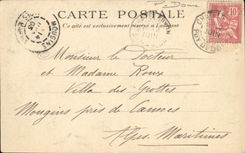 CARTE POSTALE
Ce côté est exclusivement réservé à l'adresse
10
Monsieur le Docteur
et Madame Roux
Villa des Grottes
Mougins près de Cannes
Alpes Maritimes